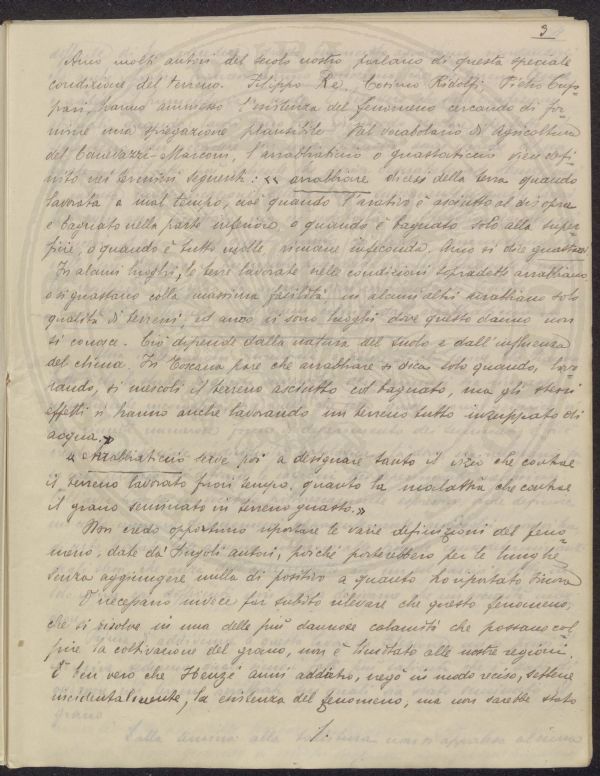 3
Anco molti autori del secolo nostro parlano di questa speciale
condizione del terreno. Filippo Re, Cosimo Ridolfi, Pietro Cup=
pari, hanno ammesso l'esistenza del fenomeno cercando di for=
nirne una spiegazione plausibile. Nel vocabolario di Agricoltura
del Canevazzi-Marconi, l'arrabbiaticcio o guastaticcio vien defi=
nito nei termini seguenti: « arrabbiare dicesi della terra quando
lavorata a mal tempo, cioè quando l'arativo è asciutto al di sopra
e bagnato nella parte inferiore o quando è bagnato solo alla super
ficie, o quando è tutto molle, rimane infeconda. Anco si dice guastarsi
In alcuni luoghi, le terre lavorate nelle condizioni sopradette arrabbiano
o si guastano colla massima facilità in alcuni altri arrabbiano solo
qualità di terreni, ed anco vi sono luoghi dove questo danno non
si conosce. Ciò dipende dalla natura del suolo e dall'influenza
del clima. In Toscana pare che arrabbiare si dica solo quando, lavo
rando, si mescoli il terreno asciutto col bagnato, ma gli stessi
effetti si hanno anche lavorando un terreno tutto inzuppato di
acqua.»
« Arrabbiaticcio serve poi a designare tanto il vizio che contrae
il terreno lavorato fuori tempo, quanto la malattia che contrae
il grano seminato in terreno guasto.»
Non credo opportuno riportare le varie definizioni del feno=
meno, date da' singoli autori, poichè porterebbero per le lunghe
senza aggiungere nulla di positivo a quanto ho riportato sinora
È necessario invece far subito rilevare che questo fenomeno,
che si risolve in una delle più dannose calamità che possano col=
pire la coltivazione del grano, non è limitato alle nostre regioni.
È ben vero che Heuzé anni addietro, negò in modo reciso, sebbene
incidentalmente, la esistenza del fenomeno, ma non sarebbe stato